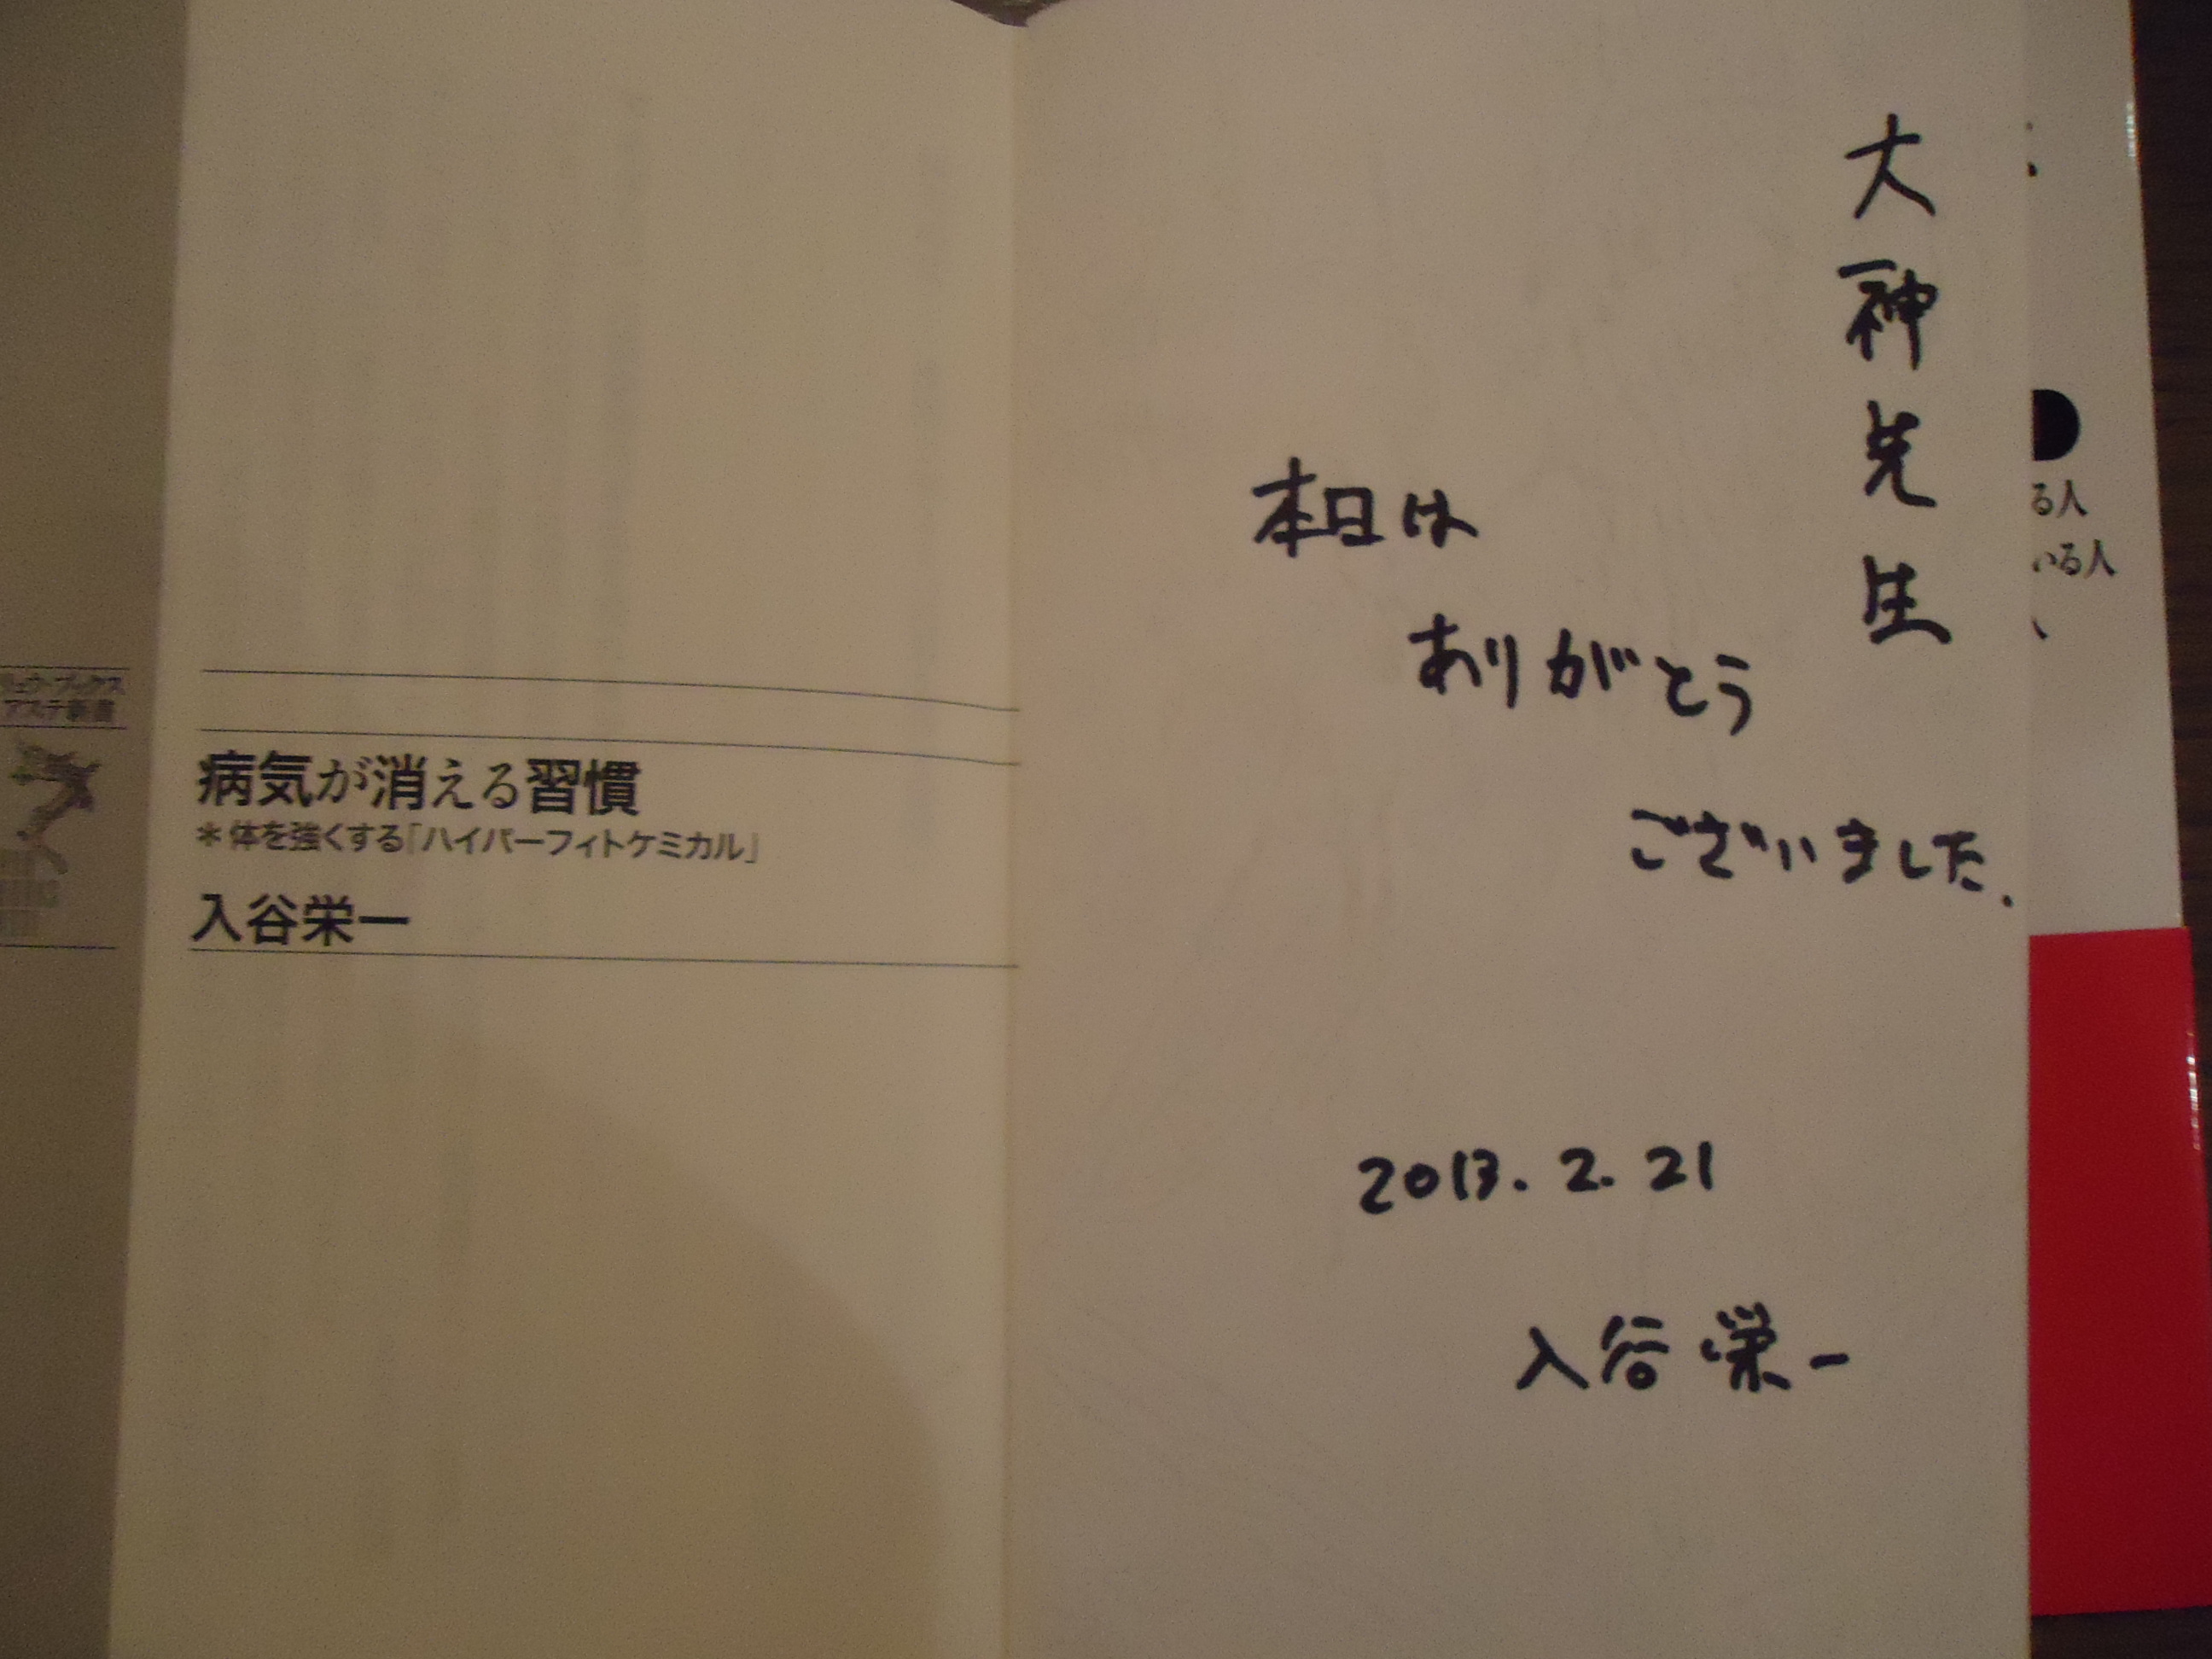 大神先生
本日は
ありがとう
ございました.
2013.2.21
入谷栄一
病気が消える習慣
*体を強くする「ハイパーフィトケミカル」
入谷栄一
リュウ・ブックス
アステ新書
る人
いる人